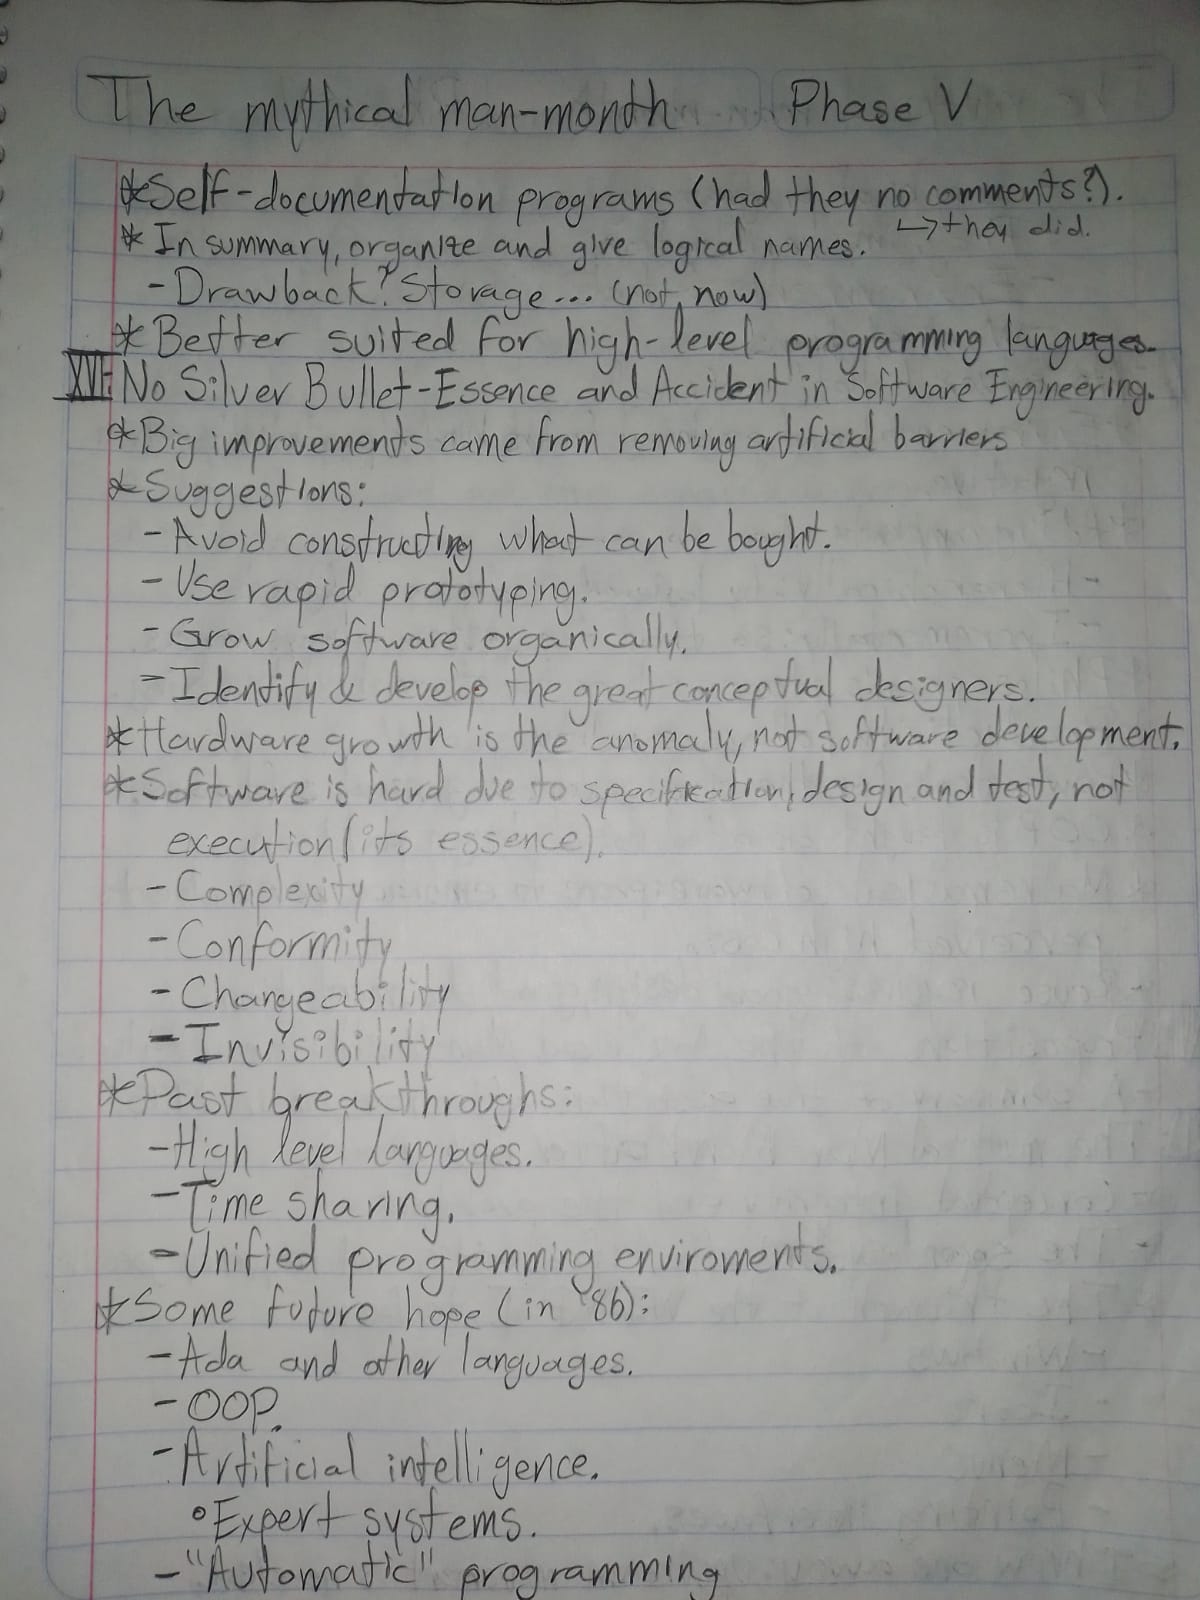 The mythical man-month Phase V
*Self-documentation programs (had they no comments?).
↳they did.
* In summary, organize and give logical names.
- Drawback? Storage... (not now)
* Better suited for high-level programming languages.
XVI: No Silver Bullet-Essence and Accident in Software Engineering.
*Big improvements came from removing artificial barriers
*Suggestions:
- Avoid constructing what can be bought.
- Use rapid prototyping.
- Grow software organically.
- Identify & develop the great conceptual designers.
*Hardware growth is the anomaly, not software development.
*Software is hard due to specification, design and test, not
execution (its essence).
- Complexity
- Conformity
- Changeability
- Invisibility
*Past breakthroughs:
- High level languages.
- Time sharing.
- Unified programming enviroments.
*Some future hope (in '86):
- Ada and other languages.
- OOP.
- Artificial intelligence.
° Expert systems.
- "Automatic" programming